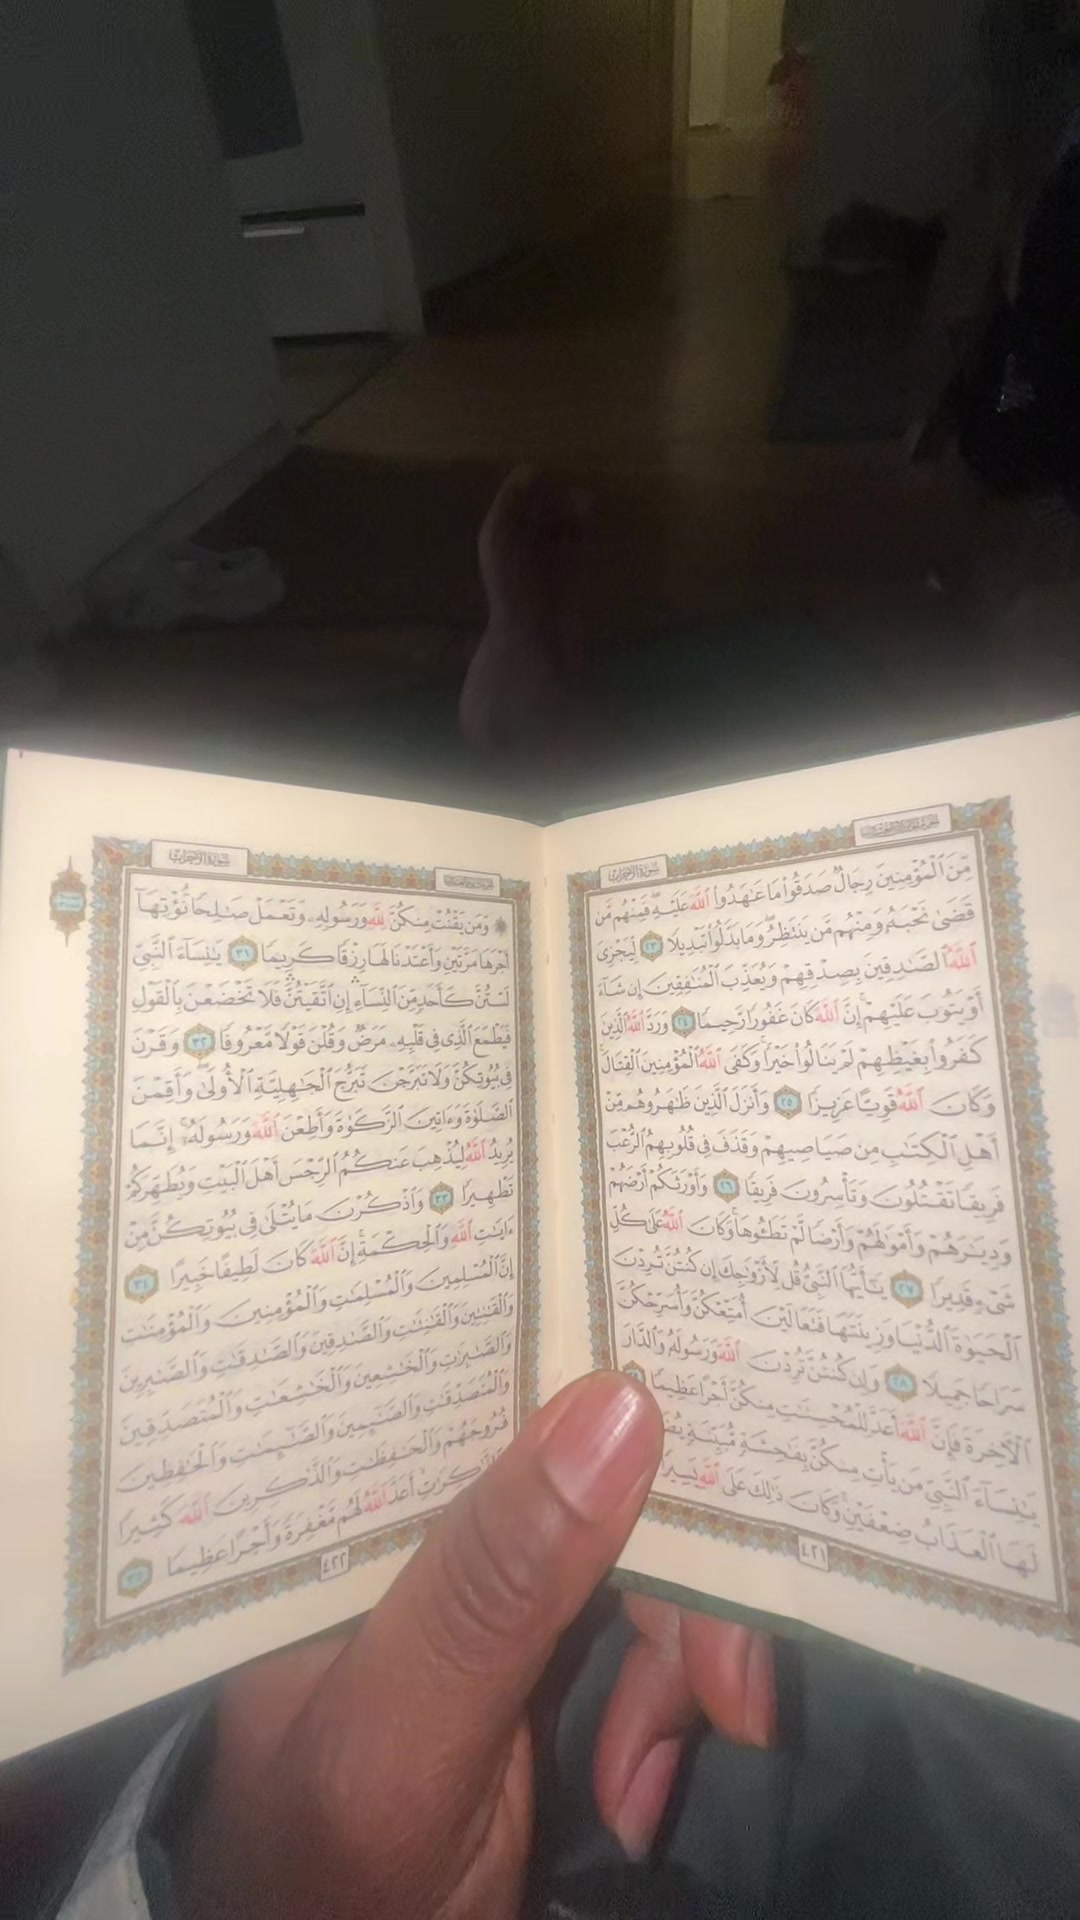 سُورَةُ الأَحْزَابِ
مِّنَ ٱلْمُؤْمِنِينَ رِجَالٌ صَدَقُوا۟ مَا عَـٰهَدُوا۟ ٱللَّهَ عَلَيْهِ ۖ فَمِنْهُم مَّن
قَضَىٰ نَحْبَهُۥ وَمِنْهُم مَّن يَنتَظِرُ ۖ وَمَا بَدَّلُوا۟ تَبْدِيلًا ٢٣ لِّيَجْزِىَ
ٱللَّهُ ٱلصَّـٰدِقِينَ بِصِدْقِهِمْ وَيُعَذِّبَ ٱلْمُنَـٰفِقِينَ إِن شَآءَ
أَوْ يَتُوبَ عَلَيْهِمْ ۚ إِنَّ ٱللَّهَ كَانَ غَفُورًا رَّحِيمًا ٢٤ وَرَدَّ ٱللَّهُ ٱلَّذِينَ
كَفَرُوا۟ بِغَيْظِهِمْ لَمْ يَنَالُوا۟ خَيْرًا ۚ وَكَفَى ٱللَّهُ ٱلْمُؤْمِنِينَ ٱلْقِتَالَ ۚ
وَكَانَ ٱللَّهُ قَوِيًّا عَزِيزًا ٢٥ وَأَنزَلَ ٱلَّذِينَ ظَـٰهَرُوهُم مِّنْ
أَهْلِ ٱلْكِتَـٰبِ مِن صَيَاصِيهِمْ وَقَذَفَ فِى قُلُوبِهِمُ ٱلرُّعْبَ
فَرِيقًا تَقْتُلُونَ وَتَأْسِرُونَ فَرِيقًا ٢٦ وَأَوْرَثَكُمْ أَرْضَهُمْ
وَدِيَـٰرَهُمْ وَأَمْوَٰلَهُمْ وَأَرْضًا لَّمْ تَطَـُٔوهَا ۚ وَكَانَ ٱللَّهُ عَلَىٰ كُلِّ
شَىْءٍ قَدِيرًا ٢٧ يَـٰٓأَيُّهَا ٱلنَّبِىُّ قُل لِّأَزْوَٰجِكَ إِن كُنتُنَّ تُرِدْنَ
ٱلْحَيَوٰةَ ٱلدُّنْيَا وَزِينَتَهَا فَتَعَالَيْنَ أُمَتِّعْكُنَّ وَأُسَرِّحْكُنَّ
سَرَاحًا جَمِيلًا ٢٨ وَإِن كُنتُنَّ تُرِدْنَ ٱللَّهَ وَرَسُولَهُۥ وَٱلدَّارَ
ٱلْـَٔاخِرَةَ فَإِنَّ ٱللَّهَ أَعَدَّ لِلْمُحْسِنَـٰتِ مِنكُنَّ أَجْرًا عَظِيمًا
يَـٰنِسَآءَ ٱلنَّبِىِّ مَن يَأْتِ مِنكُنَّ بِفَـٰحِشَةٍ مُّبَيِّنَةٍ
لَهَا ٱلْعَذَابُ ضِعْفَيْنِ ۚ وَكَانَ ذَٰلِكَ عَلَى ٱللَّهِ يَسِيرًا
٤٢١
سُورَةُ الأَحْزَابِ
۞ وَمَن يَقْنُتْ مِنكُنَّ لِلَّهِ وَرَسُولِهِۦ وَتَعْمَلْ صَـٰلِحًا نُّؤْتِهَآ
أَجْرَهَا مَرَّتَيْنِ وَأَعْتَدْنَا لَهَا رِزْقًا كَرِيمًا ٣١ يَـٰنِسَآءَ ٱلنَّبِىِّ
لَسْتُنَّ كَأَحَدٍ مِّنَ ٱلنِّسَآءِ ۚ إِنِ ٱتَّقَيْتُنَّ فَلَا تَخْضَعْنَ بِٱلْقَوْلِ
فَيَطْمَعَ ٱلَّذِى فِى قَلْبِهِۦ مَرَضٌ وَقُلْنَ قَوْلًا مَّعْرُوفًا ٣٢ وَقَرْنَ
فِى بُيُوتِكُنَّ وَلَا تَبَرَّجْنَ تَبَرُّجَ ٱلْجَـٰهِلِيَّةِ ٱلْأُولَىٰ ۖ وَأَقِمْنَ
ٱلصَّلَوٰةَ وَءَاتِينَ ٱلزَّكَوٰةَ وَأَطِعْنَ ٱللَّهَ وَرَسُولَهُۥٓ ۚ إِنَّمَا
يُرِيدُ ٱللَّهُ لِيُذْهِبَ عَنكُمُ ٱلرِّجْسَ أَهْلَ ٱلْبَيْتِ وَيُطَهِّرَكُمْ
تَطْهِيرًا ٣٣ وَٱذْكُرْنَ مَا يُتْلَىٰ فِى بُيُوتِكُنَّ مِنْ
ءَايَـٰتِ ٱللَّهِ وَٱلْحِكْمَةِ ۚ إِنَّ ٱللَّهَ كَانَ لَطِيفًا خَبِيرًا ٣٤
إِنَّ ٱلْمُسْلِمِينَ وَٱلْمُسْلِمَـٰتِ وَٱلْمُؤْمِنِينَ وَٱلْمُؤْمِنَـٰتِ
وَٱلْقَـٰنِتِينَ وَٱلْقَـٰنِتَـٰتِ وَٱلصَّـٰدِقِينَ وَٱلصَّـٰدِقَـٰتِ وَٱلصَّـٰبِرِينَ
وَٱلصَّـٰبِرَٰتِ وَٱلْخَـٰشِعِينَ وَٱلْخَـٰشِعَـٰتِ وَٱلْمُتَصَدِّقِينَ
وَٱلْمُتَصَدِّقَـٰتِ وَٱلصَّـٰٓئِمِينَ وَٱلصَّـٰٓئِمَـٰتِ وَٱلْحَـٰفِظِينَ
فُرُوجَهُمْ وَٱلْحَـٰفِظَـٰتِ وَٱلذَّٰكِرِينَ ٱللَّهَ كَثِيرًا
وَٱلذَّٰكِرَٰتِ أَعَدَّ ٱللَّهُ لَهُم مَّغْفِرَةً وَأَجْرًا عَظِيمًا ٣٥
٤٢٢